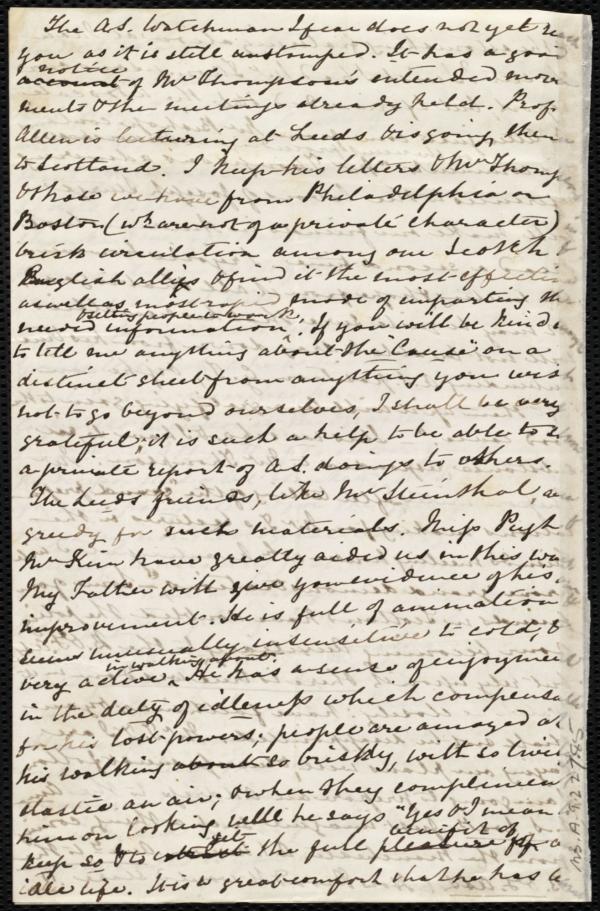 The A.S. Watchman I fear does not yet
you as it is still unstamped. It has a good
notice
account of Mr Thompson's intended move
ments & the meetings already held. Prof.
Allen is lecturing at Leeds & is going then
to Scotland. I keep his letters & Mr Thomp
& those we have from Philadelphia or
Boston (wh: are not of a private character)
brisk circulation among our Scotch &
English allies & find it the most effective
as well as most rapid mode of imparting the
& setting people to work
needed information. If you will be kind
to tell me anything about the "Cause" on a
distinct sheet from anything you wish
not to go beyond ourselves, I shall be very
grateful; it is such a help to be able to
a private report of A.S. doings to others.
The Leeds friends, like Mr Steinthal, a
greedy for such materials. Miss Pugh
Mr Kim have greatly aided us in this wa
My Father will give you evidence of his
improvement. He is full of animation
seems unusually insensitive to cold, &
in walking about
very active. He has a sense of enjoyme
in the duty of idleness which compensa
for his lost powers; people are amazed at
his walking about so briskly, with so
elastic an air; & when they complimen
him on looking well he says "Yes & I mean
get benefit of
keep so & to the full pleasure of a
idle life. It is a great comfort that he has a
Ms. A. 9.2 27.45